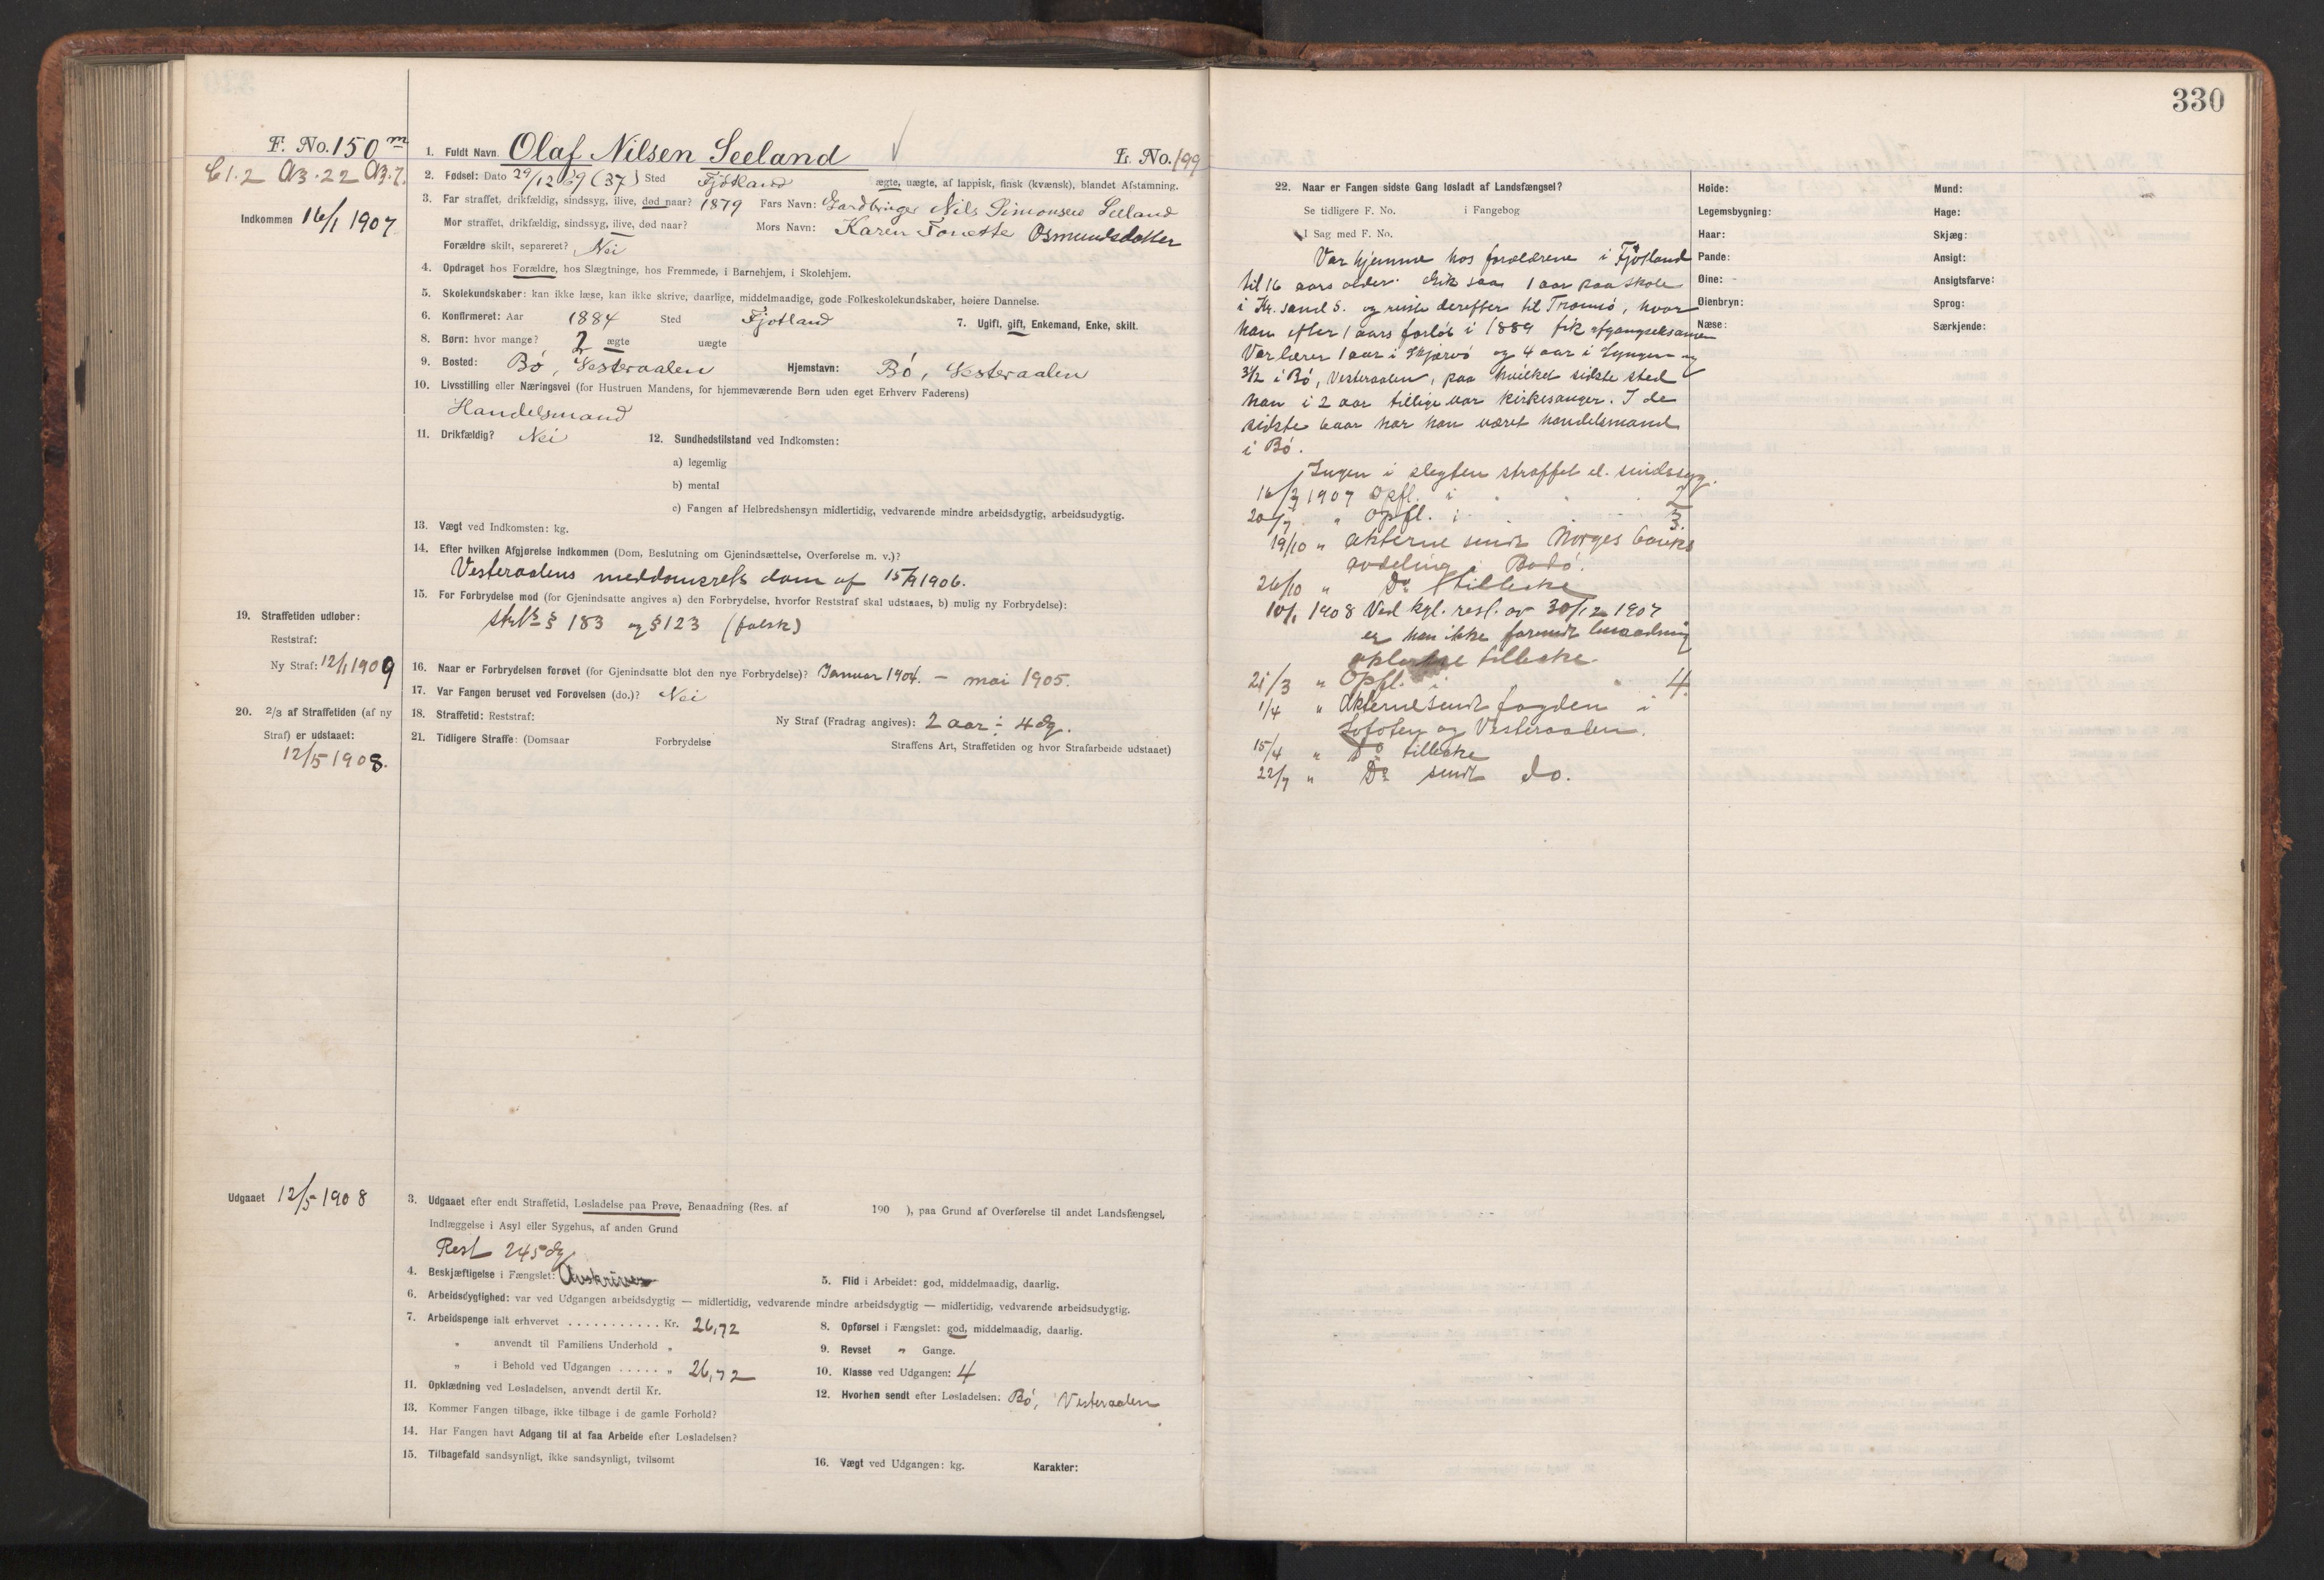 330
F. No. 150 m
Cl. 2 A3. 22 A3. 7.
Indkommen 16/1 1907
1. Fuldt Navn Olaf Nilsen Seeland
L. No. 199
2. Fødsel: Dato 29/12 69 (37) Sted Fjotland ægte, uægte, af lappisk, finsk (kvænsk), blandet Afstamning.
3. Far straffet, drikfældig, sindssyg, ilive, død naar? 1879 Fars Navn: Gardbruger Nils Simonsen Seeland
Mor straffet, drikfældig, sindssyg, ilive, død naar? Mors Navn: Karen Tonette Osmundsdatter
Forældre skilt, separeret? Nei
4. Opdraget hos Forældre, hos Slægtninge, hos Fremmede, i Barnehjem, i Skolehjem.
5. Skolekundskaber: kan ikke læse, kan ikke skrive, daarlige, middelmaadige, gode Folkeskolekundskaber, høiere Dannelse.
6. Konfirmeret: Aar 1884 Sted Fjotland 7. Ugift, gift, Enkemand, Enke, skilt.
8. Børn: hvor mange? 2 ægte uægte
9. Bosted: Bó, Vesteraalen Hjemstavn: Bó, Vesteraalen
10. Livsstilling eller Næringsvei (for Hustruen Mandens, for hjemmeværende Børn uden eget Erhverv Faderens)
Handelsmand
11. Drikfældig? Nei 12. Sundhedstilstand ved Indkomsten:
a) legemlig
b) mental
c) Fangen af Helbredshensyn midlertidig, vedvarende mindre arbeidsdygtig, arbeidsudygtig.
13. Vægt ved Indkomsten: kg.
14. Efter hvilken Afgjørelse indkommen (Dom, Beslutning om Gjenindsættelse, Overførelse m. v.)?
Vesteraalens meddomsrets dom af 15/9 1906.
15. For Forbrydelse mod (for Gjenindsatte angives a) den Forbrydelse, hvorfor Reststraf skal udstaaes, b) mulig ny Forbrydelse):
§ 183 og § 123 (falsk)
19. Straffetiden udløber:
Reststraf:
Ny Straf: 12/1 1909
16. Naar er Forbrydelsen forøvet (for Gjenindsatte blot den nye Forbrydelse)? Januar 1904. – mai 1905.
17. Var Fangen beruset ved Forøvelsen (do.)? Nei
20. 2/3 af Straffetiden (af ny
Straf) er udstaaet:
12/5 1908.
18. Straffetid: Reststraf: Ny Straf (Fradrag angives): 2 aar ÷ 4 dg.
21. Tidligere Straffe: (Domsaar Forbrydelse Straffens Art, Straffetiden og hvor Strafarbeide udstaaet)
Udgaaet 12/5 1908
3. Udgaaet efter endt Straffetid, Løsladelse paa Prøve, Benaadning (Res. af 190 ), paa Grund af Overførelse til andet Landsfængsel,
Indlæggelse i Asyl eller Sygehus, af anden Grund
Rest 245 dg
4. Beskjæftigelse i Fængslet: Avskriver 5. Flid i Arbeidet: god, middelmaadig, daarlig.
6. Arbeidsdygtighed: var ved Udgangen arbeidsdygtig — midlertidig, vedvarende mindre arbeidsdygtig — midlertidig, vedvarende arbeidsudygtig.
7. Arbeidspenge ialt erhvervet ........... Kr. 26,72 8. Opførsel i Fængslet: god, middelmaadig, daarlig.
„ anvendt til Familiens Underhold „ 9. Revset „ Gange.
„ i Behold ved Udgangen ..... „ 26,72 10. Klasse ved Udgangen: 4
11. Opklædning ved Løsladelsen, anvendt dertil Kr. 12. Hvorhen sendt efter Løsladelsen: Bó, Vesteraalen
13. Kommer Fangen tilbage, ikke tilbage i de gamle Forhold?
14. Har Fangen havt Adgang til at faa Arbeide efter Løsladelsen?
15. Tilbagefald sandsynligt, ikke sandsynligt, tvilsomt 16. Vægt ved Udgangen: kg. Karakter:
22. Naar er Fangen sidste Gang løsladt af Landsfængsel?
Se tidligere F. No. i Fangebog
I Sag med F. No.
Var hjemme hos forældrene i Fjotland
til 16 aars alder. Gik saa 1 aar paa skole
i Kr. sand S. og reiste derefter til Tromsø, hvor
han efter 1 aars forløb i 1889 fik afgangseksamen
Var lærer 1 aar i Skjærvó og 4 aar i Lyngen og
3 1/2 i Bó, Vesteraalen, paa hvilket sidste sted
han i 2 aar tillige var kirkesanger. I de
sidste 6 aar har han været handelsmand
i Bó.
Ingen i slegten straffet el. sindssyg.
16/3 1907 Opfl. i 2
20/7 „ Opfl. i 3.
19/10 „ akterne sendt Norges banks
avdeling i Bodó.
26/10 „ Do tilbake
10/1 1908 Ved kgl. resl. av 30/12 1907
er han ikke forundt benaadning
akterne tilbake.
21/3 „ Opfl. i 4.
1/4 „ Akterne sendt fogden i
Lofoten og Vesteraalen.
15/4 „ Do tilbake
22/7 „ Do sendt do.
Høide:
Legemsbygning:
Haar:
Pande:
Øine:
Øienbryn:
Næse:
Mund:
Hage:
Skjæg:
Ansigt:
Ansigtsfarve:
Sprog:
Særkjende: